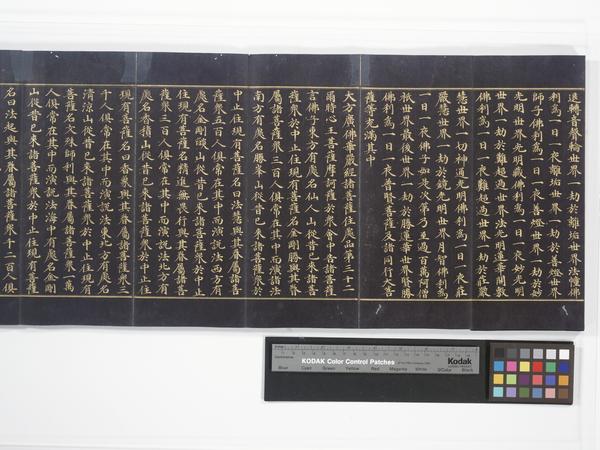 退轉音聲輪世界一劫於離垢世界法幢佛
刹為一日一夜離垢世界一劫於善燈世界
師子佛刹為一日一夜善燈世界一劫於妙
光明世界光明藏佛刹為一日一夜妙光明
世界一劫於難超過世界法光明蓮華開敷
佛刹為一日一夜難超過世界一劫於莊嚴
慧世界一切神通光明佛刹為一日一夜莊
嚴慧世界一劫於鏡光明世界月智佛刹為
一日一夜佛子如是次第乃至過百萬阿僧
祇世界最後世界一劫於勝蓮華世界賢勝
佛刹為一日一夜普賢菩薩及諸同行大菩
薩等充滿其中
大方廣佛華嚴經諸菩薩住處品第三十二
爾時心王菩薩摩訶薩於衆會中告諸菩薩
言佛子東方有處名仙人山從昔已來諸菩
薩衆於中止住現有菩薩名金剛勝與其眷
屬諸菩薩衆三百人俱常在其中而演說法
南方有處名勝峯山從昔已來諸菩薩衆於
中止住現有菩薩名曰法慧與其眷屬諸菩
薩衆五百人俱常在其中而演說法西方有
處名金剛焰山從昔已來諸菩薩衆於中止
住現有菩薩名精進無畏行與其眷屬諸菩
薩衆三百人俱常在其中而演說法北方有
處名香積山從昔已來諸菩薩衆於中止住
現有菩薩名曰香象與其眷屬諸菩薩衆三
千人俱常在其中而演說法東北方有處名
清涼山從昔已來諸菩薩衆於中止住現有
菩薩名文殊師利與其眷屬諸菩薩衆一萬
人俱常在其中而演說法海中有處名金剛
山從昔已來諸菩薩衆於中止住現有菩薩
名曰法起與其眷屬諸菩薩衆千二百人俱
KODAK Color Control Patches
Kodak
Blue Cyan Green Yellow Red Magenta White 3/Color Black